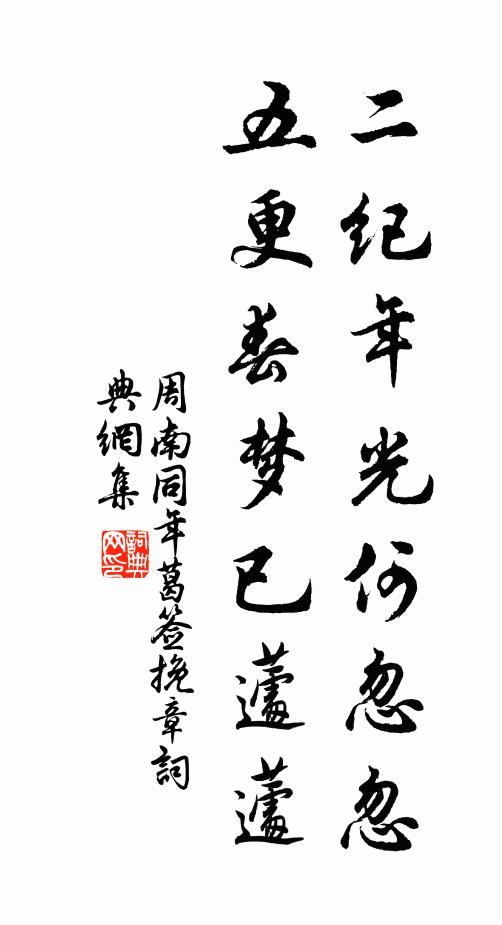 二纪年光何忽忽
五更春梦已蘧蘧
周南同年葛签挽章詞
典網集
詞典网印